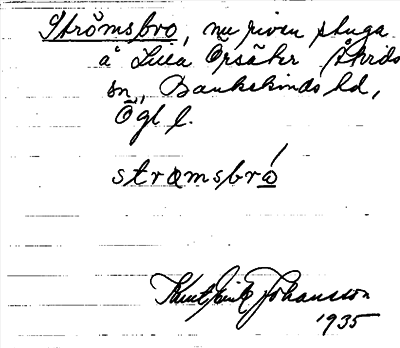 Strömsbro, nu riven stuga
å Lilla Orsäker Åtvids
sn, Bankekinds hd,
Ögl l.
strømsbró
Knut Erik Johansson
1935